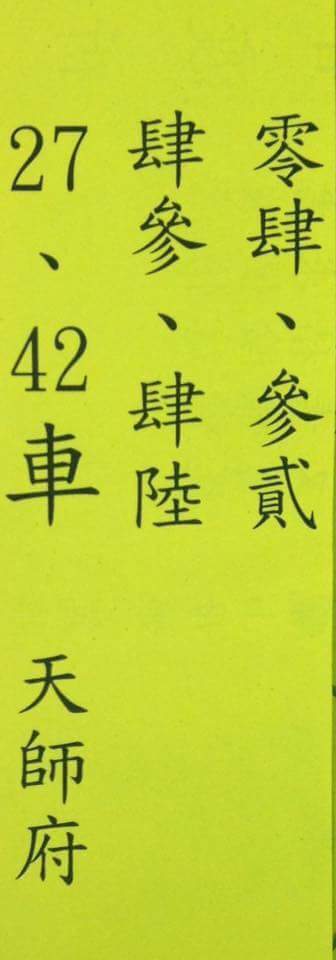 零肆、參貳
肆參、肆陸
27、42車 天師府